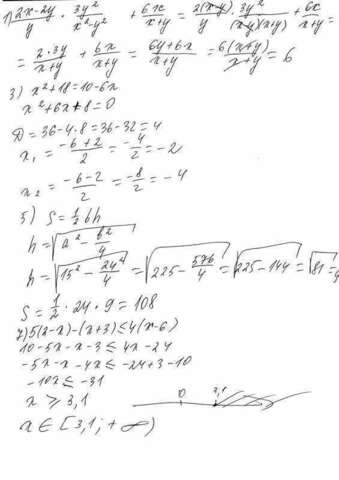 1) (2x-2y)/y · 3y²/(x²-y²) + 6x/(x+y) = 2(x-y)·3y²/((x-y)(x+y)) + 6x/(x+y) =
= 2·3y/(x+y) + 6x/(x+y) = (6y+6x)/(x+y) = 6(x+y)/(x+y) = 6
3) x²+18=10-6x
x²+6x+8=0
D=36-4·8=36-32=4
x₁=(-6+2)/2=-4/2=-2
x₂=(-6-2)/2=-8/2=-4
5) S=½bh
h=√(a²-b²/4)
h=√(15²-24²/4)=√(225-576/4)=√(225-144)=√81=9
S=½·24·9=108
7) 5(2-x)-(x+3)≤4(x-6)
10-5x-x-3≤4x-24
-5x-x-4x≤-24+3-10
-10x≤-31
x≥3,1
0 3,1
x∈[3,1;+∞)